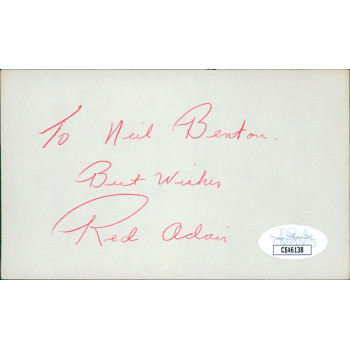 To Neil Benton.
Best Wishes
Red Adair
JSA
CE46138